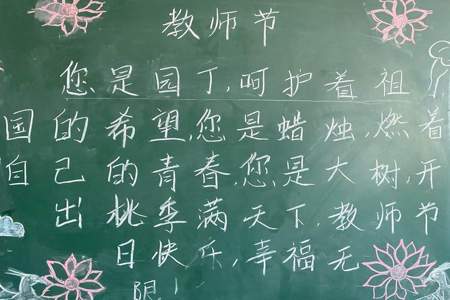 教师节
您是园丁,呵护着祖
国的希望,您是蜡烛,燃着
自己的青春,您是大树,开
出桃季满天下,教师节
日快乐,幸福无
限!